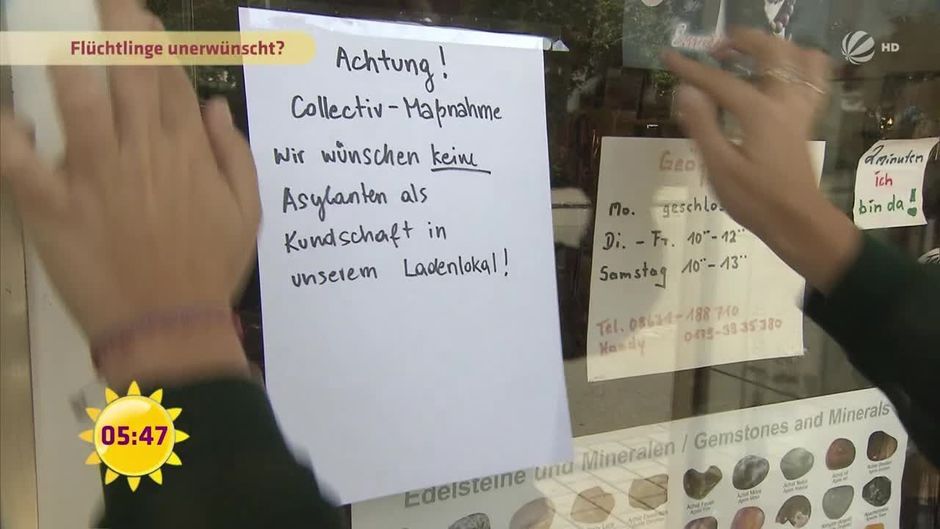 Flüchtlinge unerwünscht?
HD
Achtung!
Collectiv-Maßnahme
Wir wünschen keine
Asylanten als
Kundschaft in
unserem Ladenlokal!
Mo. geschlos
Di. - Fr. 10°° - 12°°
Samstag 10°° - 13°°
Tel. 08631-188 710
Handy
2 minuten
ich
bin da!
05:47
Edelsteine und Mineralien / Gemstones and Minerals